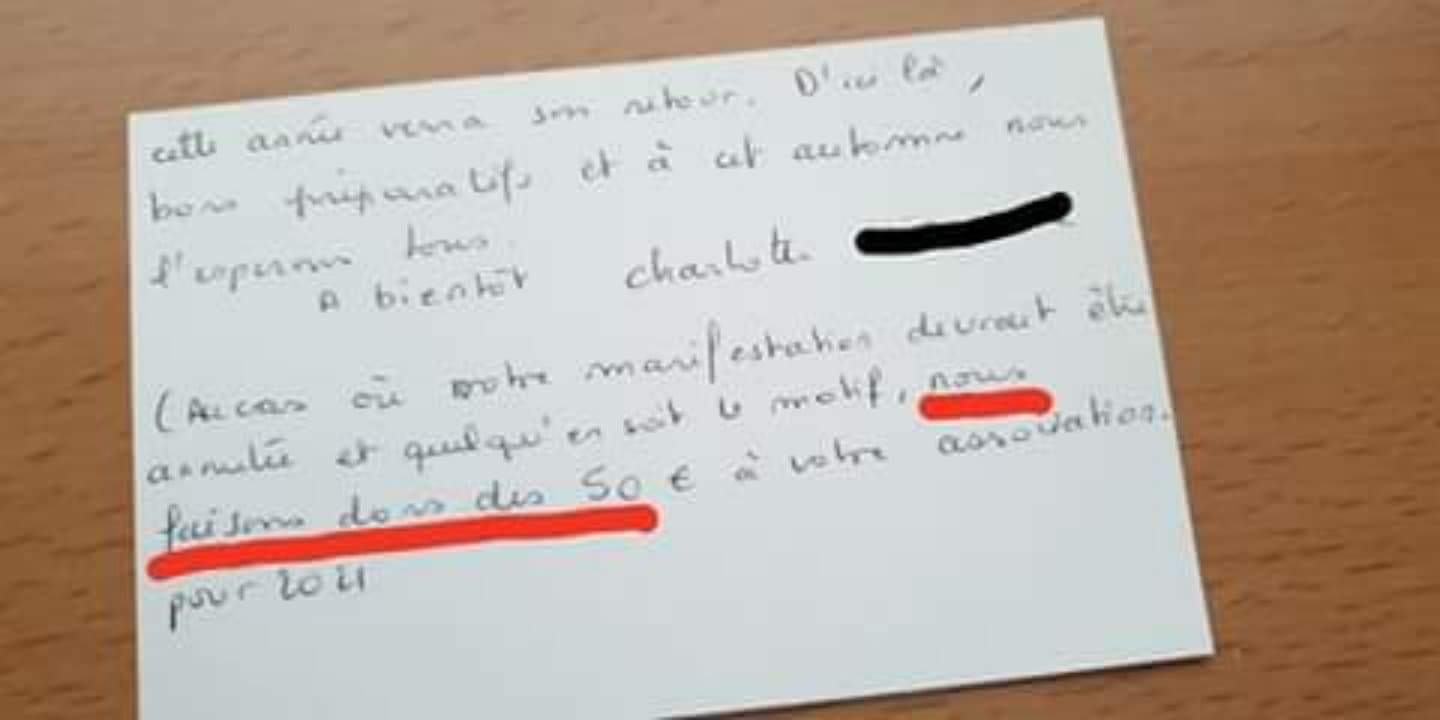 cette année verra son retour. D'ici là,
bons préparatifs et à cet automne nous
l'espérons tous.
A bientôt Charlotte
(Au cas où votre manifestation devrait être
annulée et quelqu'en soit le motif, nous
faisons dons des 50 € à votre association.
pour 2021